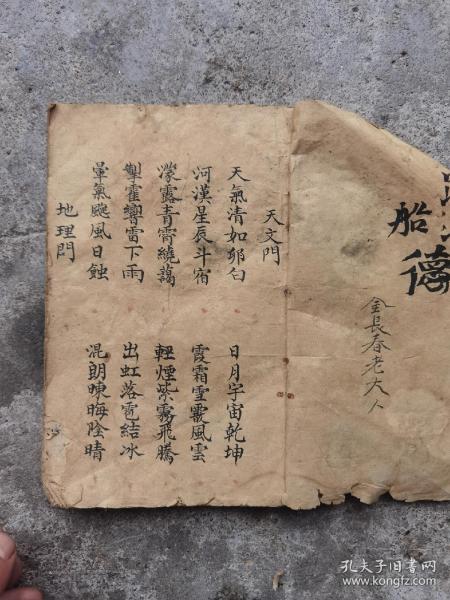 船
德
金長春老大人
天文門
天氣清如卵白 日月宇宙乾坤
河漢星辰斗宿 霞霜雪靄風雲
濛露青霄繞藹 輕煙紫霧飛騰
掣霍響雷下雨 出虹落雹結冰
暈氣颰風日蝕 混朗暕晦陰晴
地理門
孔夫子旧书网
www.kongfz.com